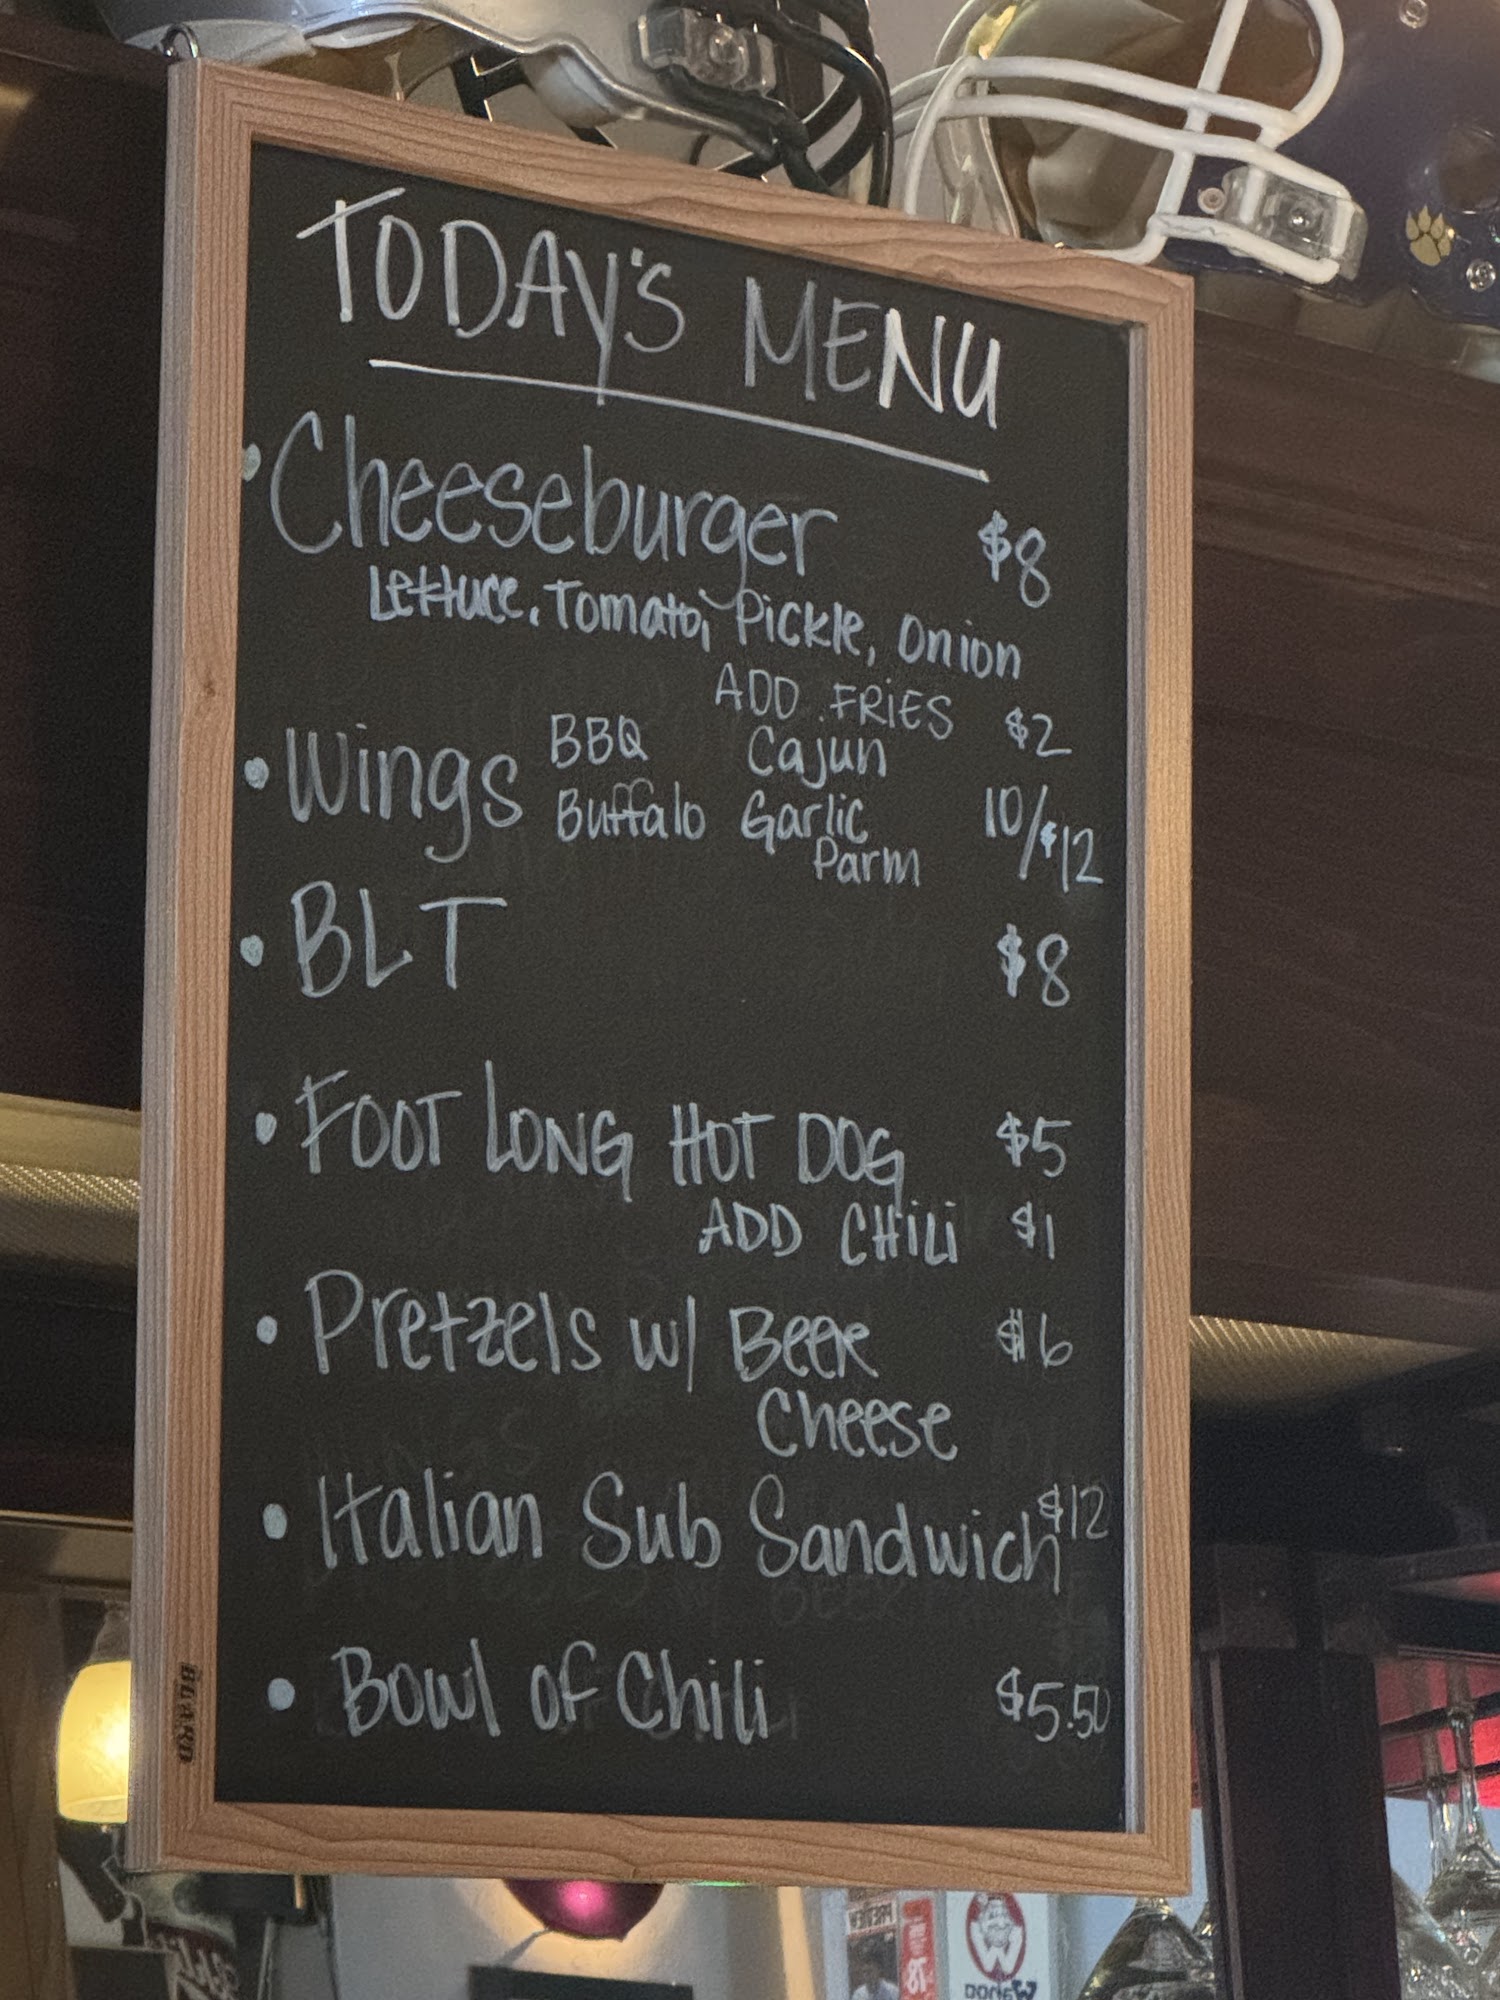 TODAY'S MENU
• Cheeseburger $8
Lettuce, Tomato, Pickle, Onion
ADD FRIES $2
• Wings BBQ Cajun
Buffalo Garlic Parm 10/$12
• BLT $8
• FOOT LONG HOT DOG $5
ADD CHILI $1
• Pretzels w/ Beer $6
Cheese
• Italian Sub Sandwich $12
• Bowl of Chili $5.50
BOARD